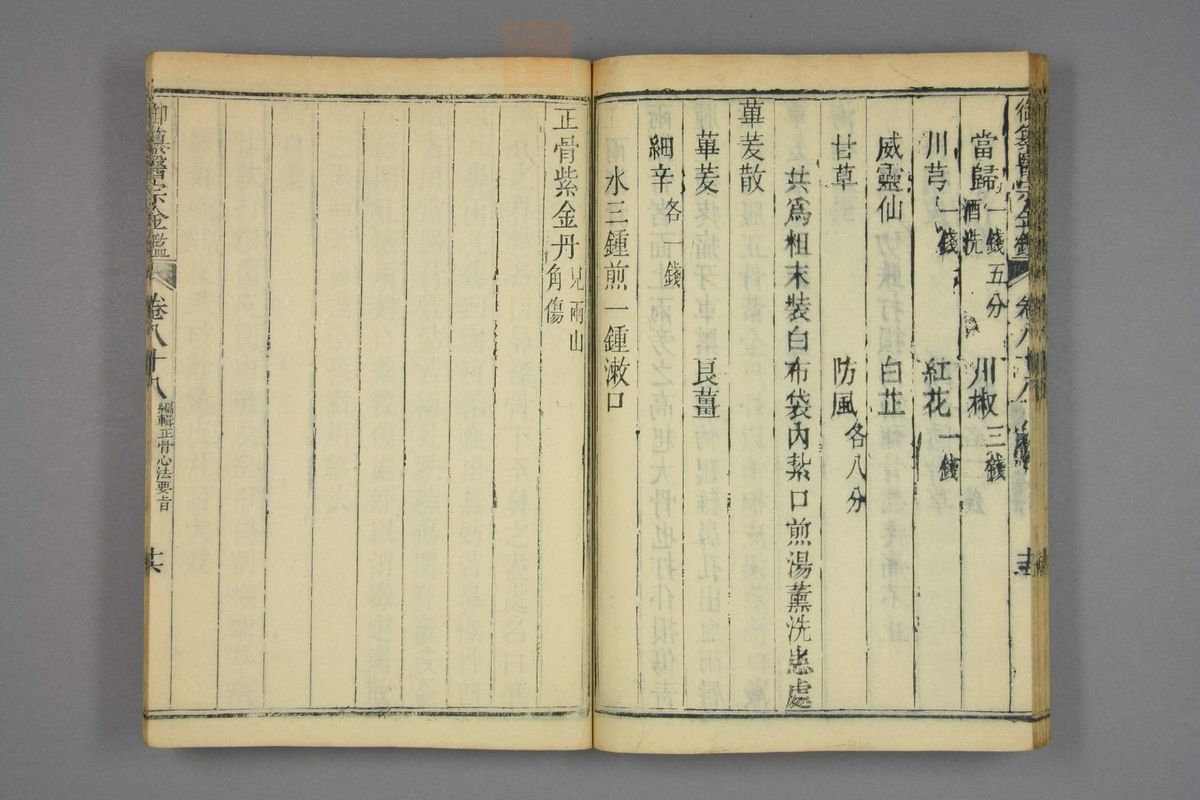 御纂醫宗金鑑 卷八十八
當歸一錢五分酒洗 川椒三錢
川芎一錢 紅花一錢
威靈仙 白芷
甘草 防風各八分
共爲粗末裝白布袋內紮口煎湯薰洗患處
蓽茇散
蓽茇 良薑
細辛各一錢
水三鍾煎一鍾漱口
正骨紫金丹見兩山角傷
御纂醫宗金鑑 卷八十八 編輯正骨心法要旨 十六